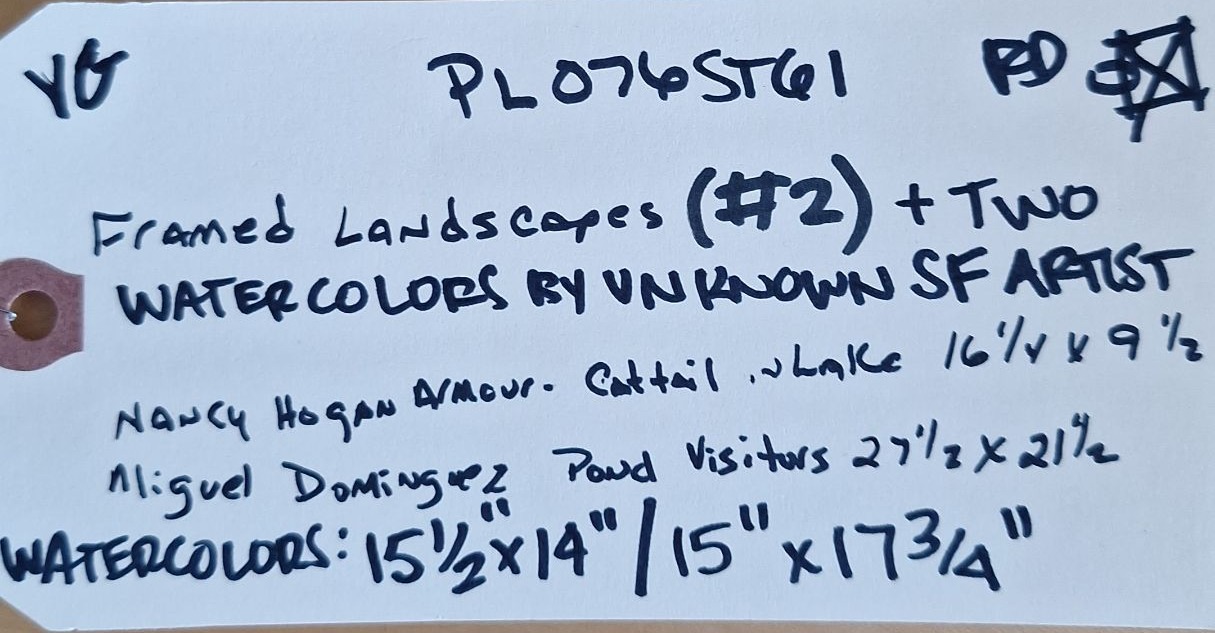 VG PL076ST61 RD
Framed Landscapes (#2) + Two
WATERCOLORS BY UNKNOWN SF ARTIST
Nancy Hogan Armour. Cattail in Lake 16 1/4 x 9 1/2
Miguel Dominguez Pond Visitors 27 1/2 x 21 1/2
WATERCOLORS: 15 1/2" x 14" / 15" x 17 3/4"